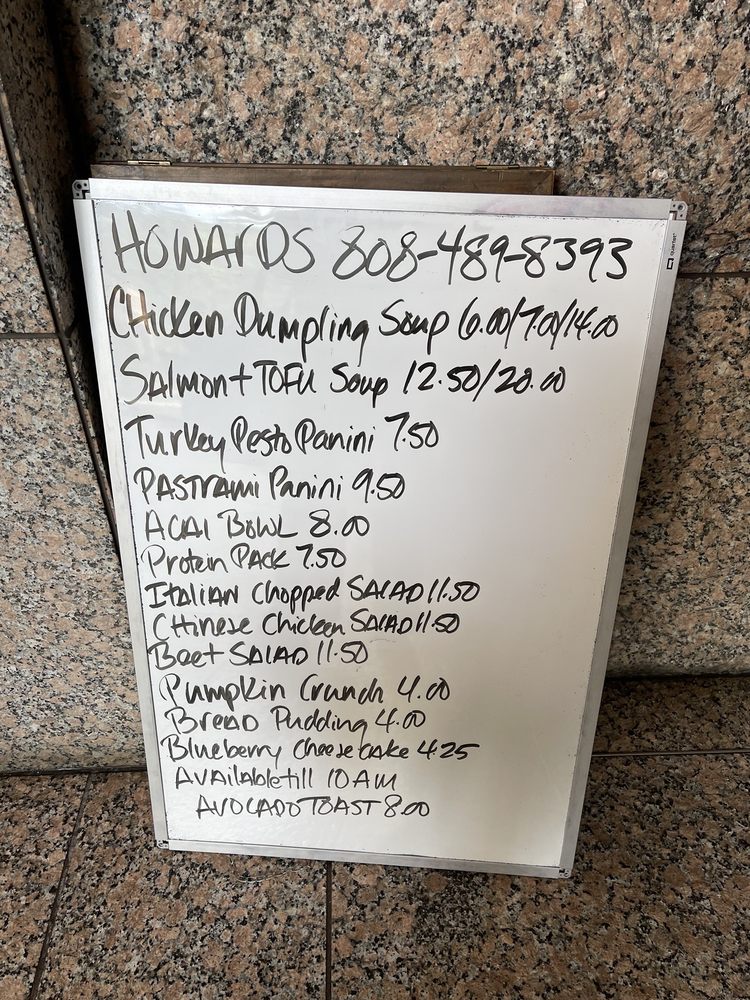 HOWARDS 808-489-8393
Chicken Dumpling Soup 6.00/7.00/14.00
Salmon + TOFU Soup 12.50/20.00
Turkey Pesto Panini 7.50
PASTRAMI Panini 9.50
ACAI BOWL 8.00
Protein PACK 7.50
ITALIAN Chopped SALAD 11.50
CHinese Chicken SALAD 11.50
Beet SALAD 11.50
Pumpkin Crunch 4.00
BREAD Pudding 4.00
Blueberry Cheesecake 4.25
AVAilable till 10 AM
AVOCADO TOAST 8.00
QUARTET